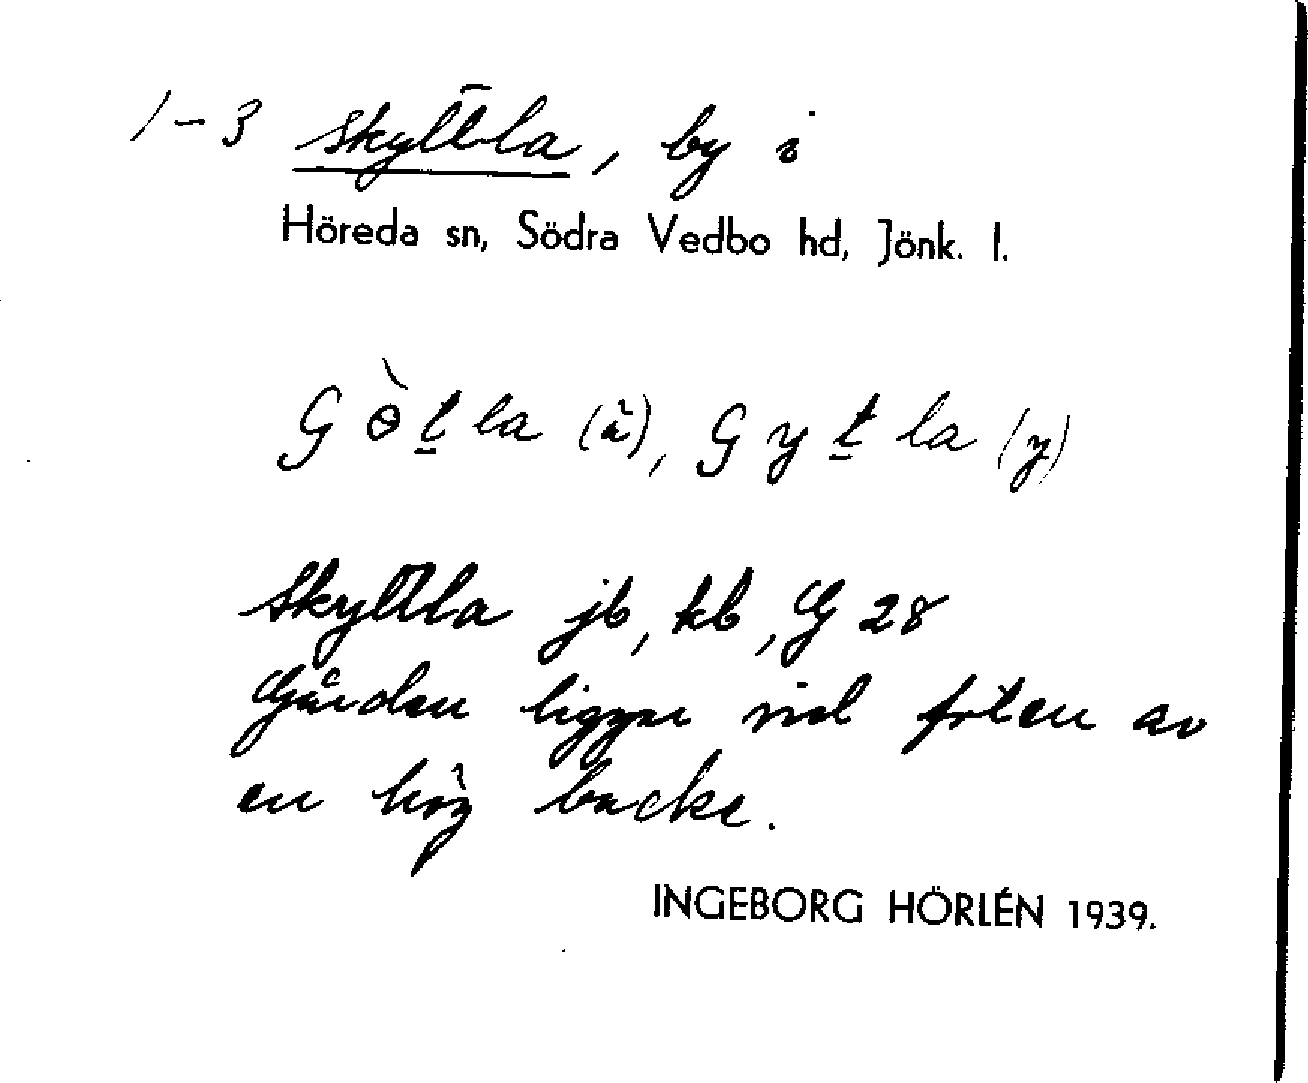 1-3 Skyttla, by i
Höreda sn, Södra Vedbo hd, Jönk. l.
Skyttla jb, kb, G 28
Gården ligger vid foten av
en hög backe.
INGEBORG HÖRLÉN 1939.